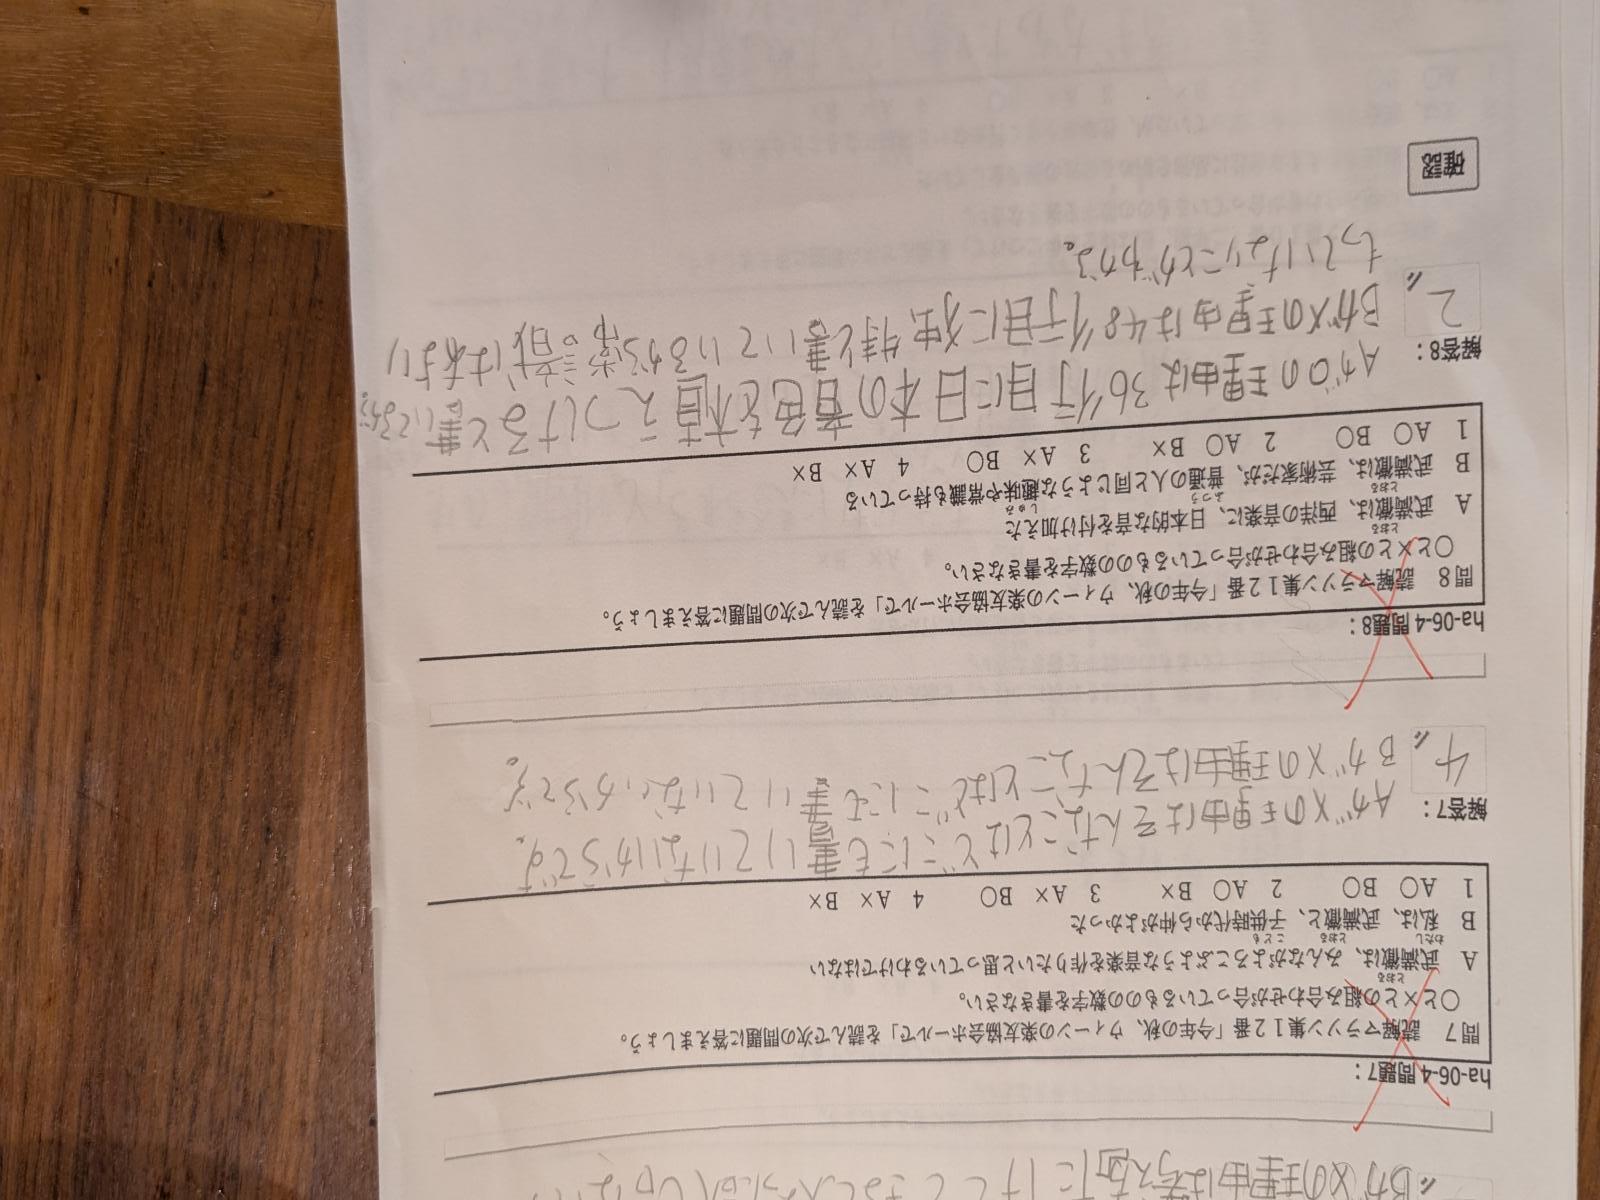 Bが×の理由は
ha-06-4 問題7：
問7 読解マラソン集12番「今年の秋、ウィーンの楽友協会ホールで」を読んで次の問題に答えましょう。
○と×との組み合わせが合っているものの数字を書きなさい。
A 武満徹は、みんながよろこぶような音楽を作りたいと思っているわけではない
B 私は、武満徹と、子供時代から仲がよかった
1 A○ B○ 2 A○ B× 3 A× B○ 4 A× B×
解答7：
4
Aが×の理由はそんなことはどこにも書いていないからです。
Bが×の理由はそんなことはどこにも書いていないからです。
ha-06-4 問題8：
問8 読解マラソン集12番「今年の秋、ウィーンの楽友協会ホールで」を読んで次の問題に答えましょう。
○と×との組み合わせが合っているものの数字を書きなさい。
A 武満徹は、西洋の音楽に、日本的な音を付け加えた
B 武満徹は、芸術家だが、普通の人と同じような趣味や常識も持っている
1 A○ B○ 2 A○ B× 3 A× B○ 4 A× B×
解答8：
2
Aが○の理由は36行目に日本の音色を植えつけると書いてるから。
Bが×の理由は48行目に独特と書いているから常識はあまり
もっていないことがわかる。
確認